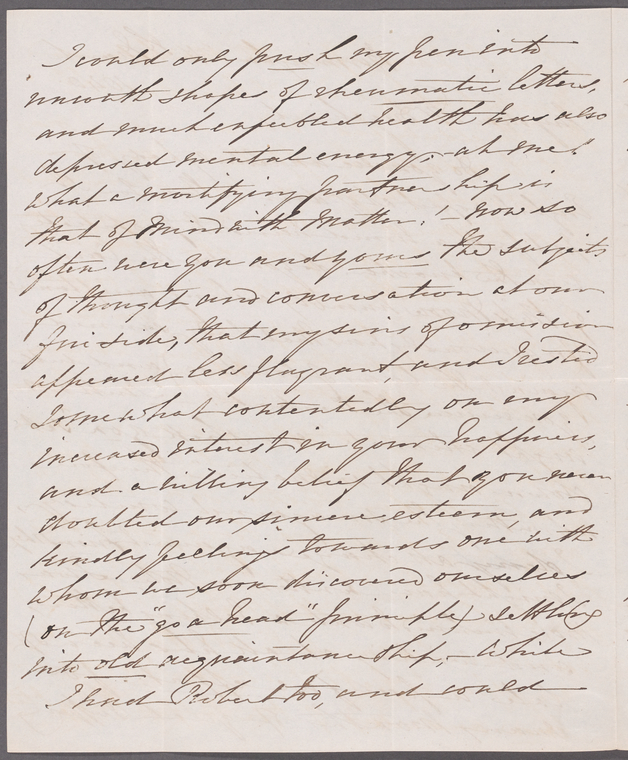 I could only push my pen into
uncouth shapes of rheumatic letters,
and much enfeebled health has also
depressed mental energy,- ah me!
what a mortifying partnership is
that of Mind with Matter! - Now so
often were you and yours the subjects
of thought and conversation at our
fireside, that my sins of omission
appeared less flagrant, and I rested
somewhat contentedly on my
increased interest in your happiness,
and a willing belief that you never
doubted our sincere esteem, and
kindly feelings towards one with
whom we soon discovered ourselves
(on the "go a head" principle) settled
into old acquaintanceship,- While
I had Robert too, and could